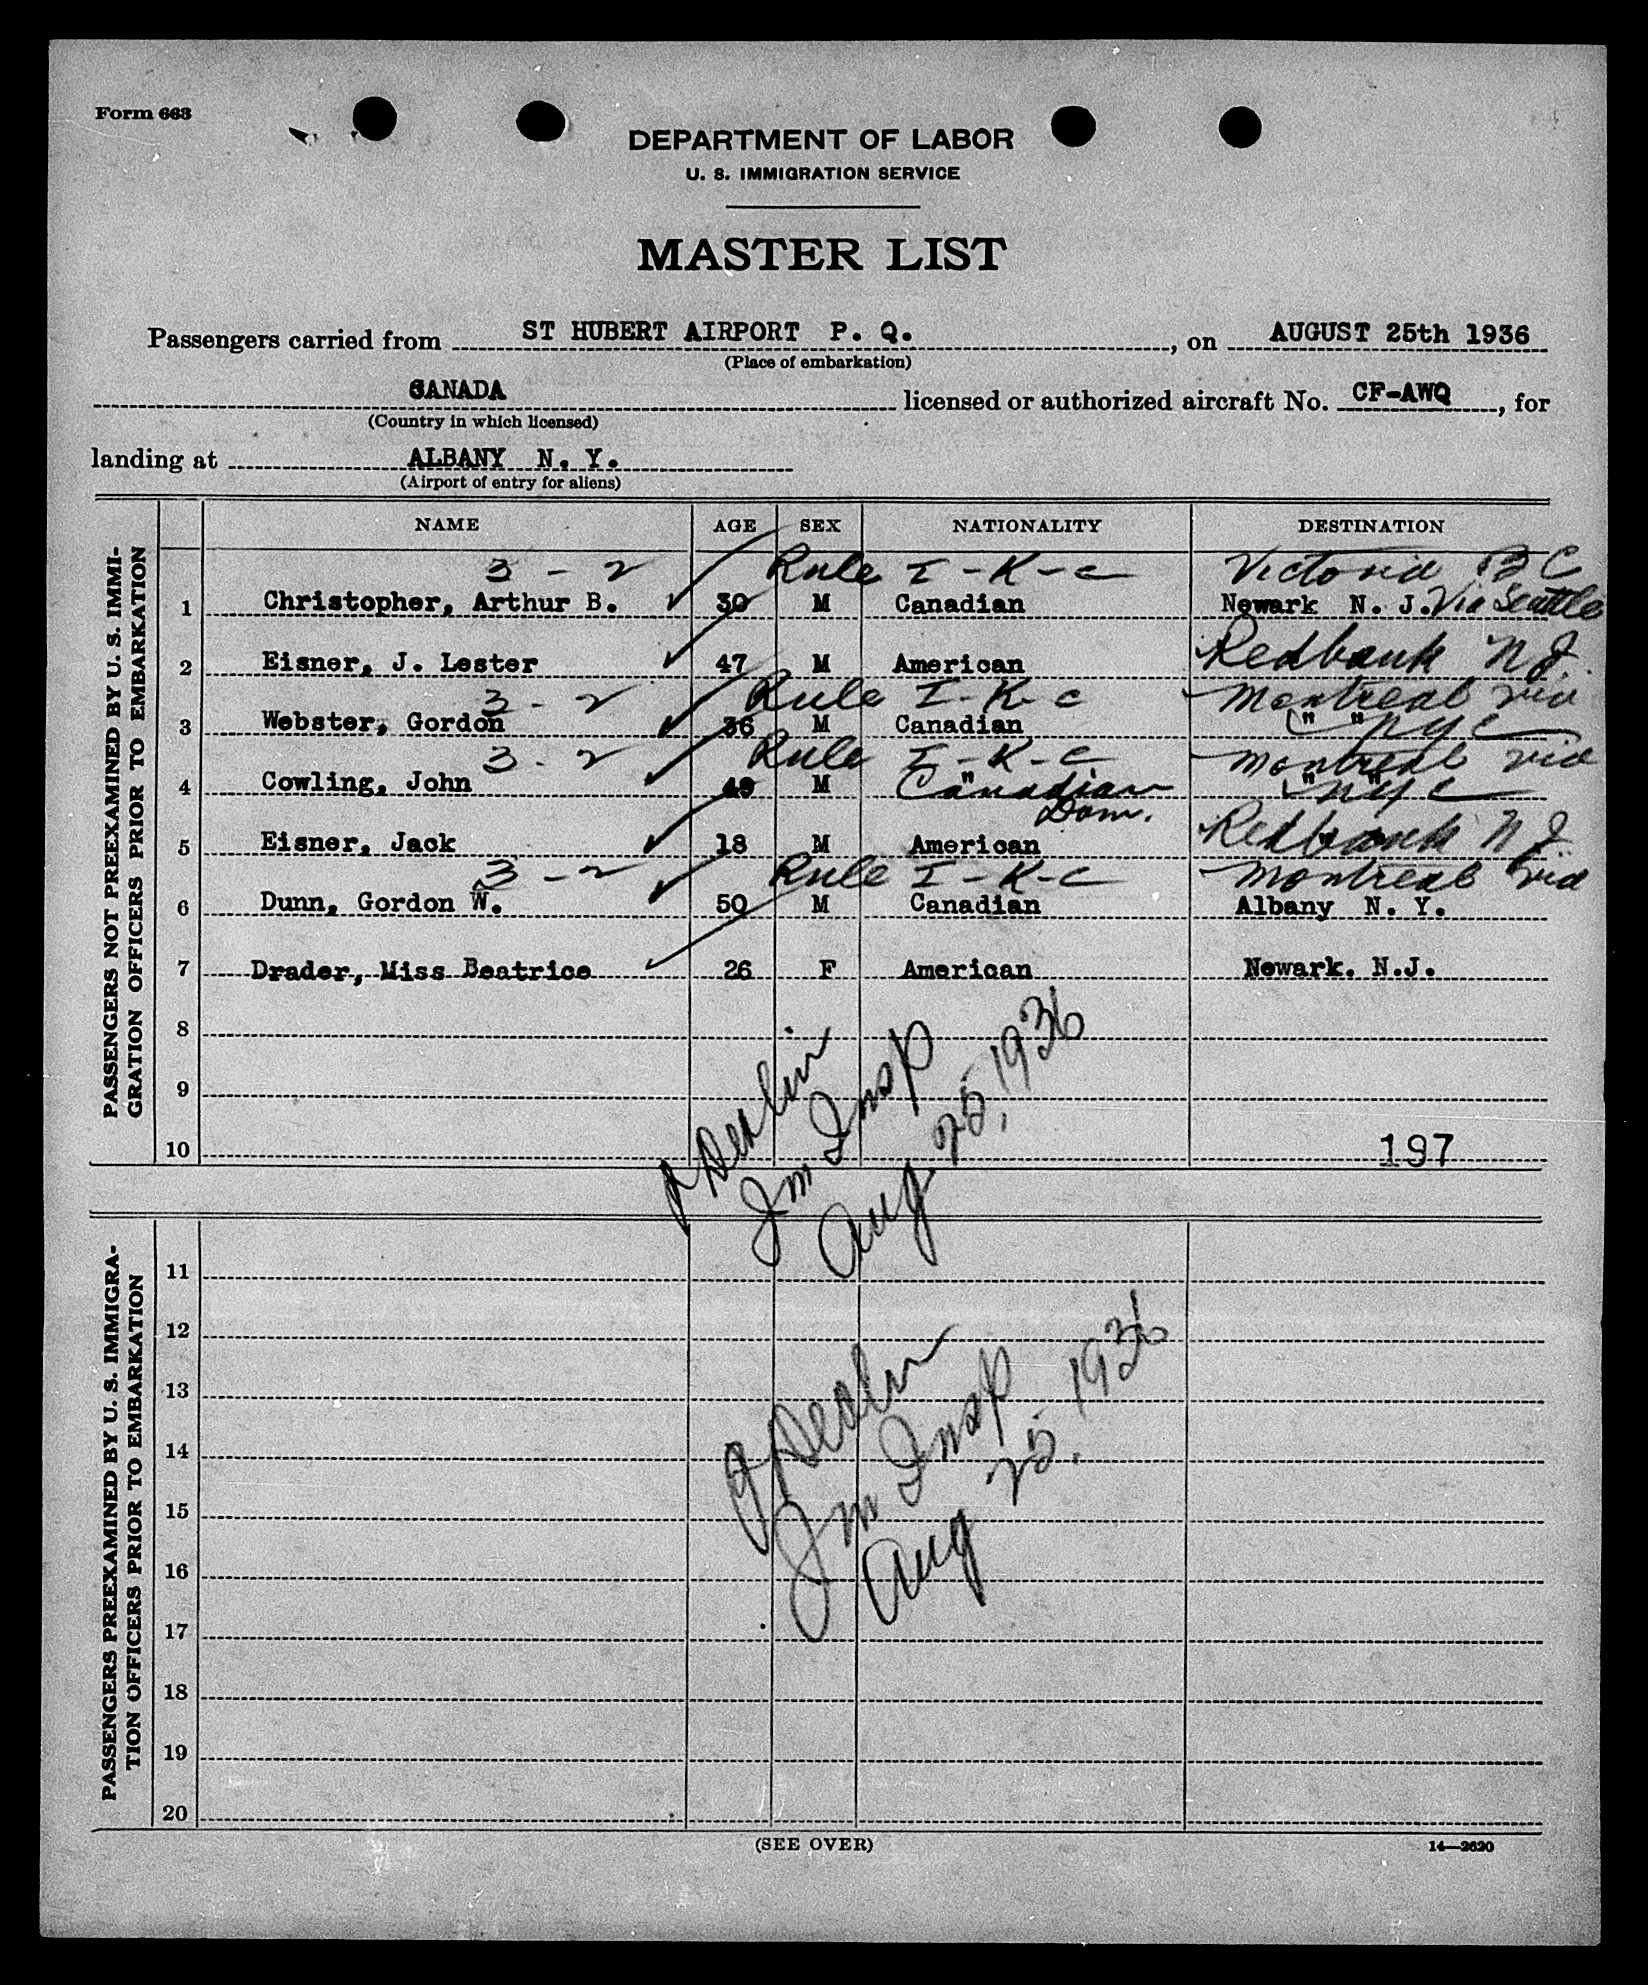 Form 663
DEPARTMENT OF LABOR
U. S. IMMIGRATION SERVICE
MASTER LIST
Passengers carried from ST HUBERT AIRPORT P. Q. , on AUGUST 25th 1936
(Place of embarkation)
CANADA licensed or authorized aircraft No. CF-AWQ , for
(Country in which licensed)
landing at ALBANY N. Y.
(Airport of entry for aliens)
PASSENGERS NOT PREEXAMINED BY U. S. IMMI-
GRATION OFFICERS PRIOR TO EMBARKATION
NAME AGE SEX NATIONALITY DESTINATION
3 - 2 Rule I - K - c Victoria B C
1 Christopher, Arthur B. 30 M Canadian Newark N. J. Via Seattle
Redbank N J.
2 Eisner, J. Lester 47 M American
3 - 2 Rule I - K - c Montreal via
3 Webster, Gordon 36 M Canadian " " NYC
3 - 2 Rule I - K - c Montreal via
4 Cowling, John 49 M " Canadian " " NYC
Dom.
5 Eisner, Jack 18 M American Redbank N J.
3 - 2 Rule I - K - c Montreal via
6 Dunn, Gordon W. 50 M Canadian Albany N. Y.
7 Drader, Miss Beatrice 26 F American Newark. N.J.
8
9
10 197
Im Insp
Aug. 25, 1936
PASSENGERS PREEXAMINED BY U. S. IMMIGRA-
TION OFFICERS PRIOR TO EMBARKATION
11
12
13
14
15
16
17
18
19
20
Im Insp
Aug 25. 1936
(SEE OVER) 14—2620